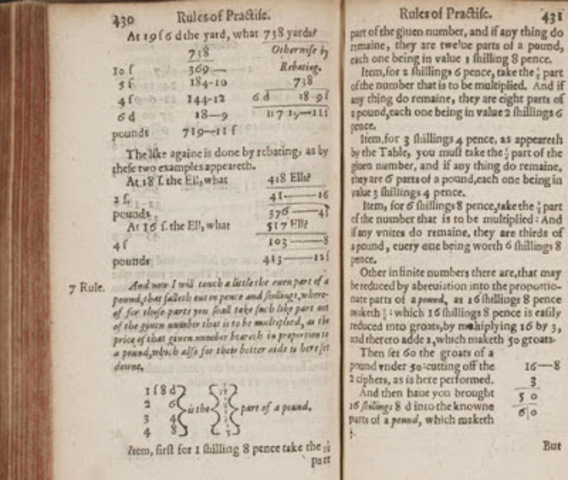 430 Rules of Practise.
At 19 ſ 6 d the yard, what 738 yards?
738 Otherwise by
10 ſ 369— Rebating.
5 ſ 184-10 738
4 ſ 144-12 6 d 18-9 ſ
6 d 18—9 719—11 ſ
pounds 719—11 ſ
The like againe is done by rebating, as by
these two examples appeareth.
At 18 ſ. the Ell, what 418 Ells?
2 ſ. 41—16
pounds 376—4 ſ
At 16 ſ. the Ell, what 517 Ells?
4 ſ 103—8
pounds 413—12 ſ
7 Rule. And now I will touch a little the even part of a
pound, that falleth out in pence and shillings, where-
of for those parts you shall take such like part out
of the given number that is to be multiplied, as the
price of that given number beareth in proportion to
a pound, which also for their better aide is here set
downe.
1 ſ 8 d
2 6
3 4 is the part of a pound.
4 8
Item, first for 1 shilling 8 pence take the
part
Rules of Practise. 431
part of the giuen number, and if any thing do
remaine, they are twelue parts of a pound,
each one being in value 1 shilling 8 pence.
Item, for 2 shillings 6 pence, take the part
of the number that is to be multiplied. And if
any thing do remaine, they are eight parts of
a pound, each one being in value 2 shillings 6
pence.
Item, for 3 shillings 4 pence, as appeareth
by the Table, you must take the part of the
giuen number, and if any thing do remaine,
they are 6 parts of a pound, each one being in
value 3 shillings 4 pence.
Item, for 6 shillings 8 pence, take the part
of the number that is to be multiplied: And
if any vnites do remaine, they are thirds of
a pound, euery one being worth 6 shillings 8
pence.
Other infinite numbers there are, that may
be reduced by abreuiation into the proportio-
nate parts of a pound, as 16 shillings 8 pence
maketh : which 16 shillings 8 pence is easily
reduced into groats, by multiplying 16 by 3,
and thereto adde 2, which maketh 50 groats.
Then set 60 the groats of a
pound vnder 50: cutting off the 16—8
2 ciphers, as is here performed. 3
And then haue you brought 5 0
16 shillings 8 d into the knowne 6|0
parts of a pound, which maketh
But